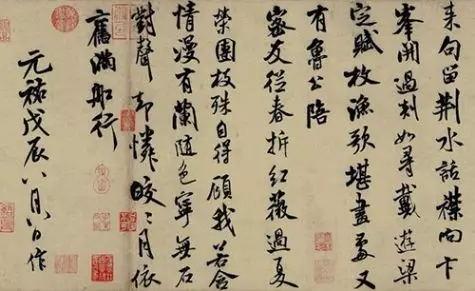 来句留荆水話襟向卞
峯開過剡如尋戴遊梁
定賦枚漁歌堪畫處又
有魯公陪
密友從春拆紅薇過夏
榮團枝殊自得顧我若含
情漫有蘭隨色寧無石
對聲却憐皎〻月依
舊滿船行
元祐戊辰八月八日作